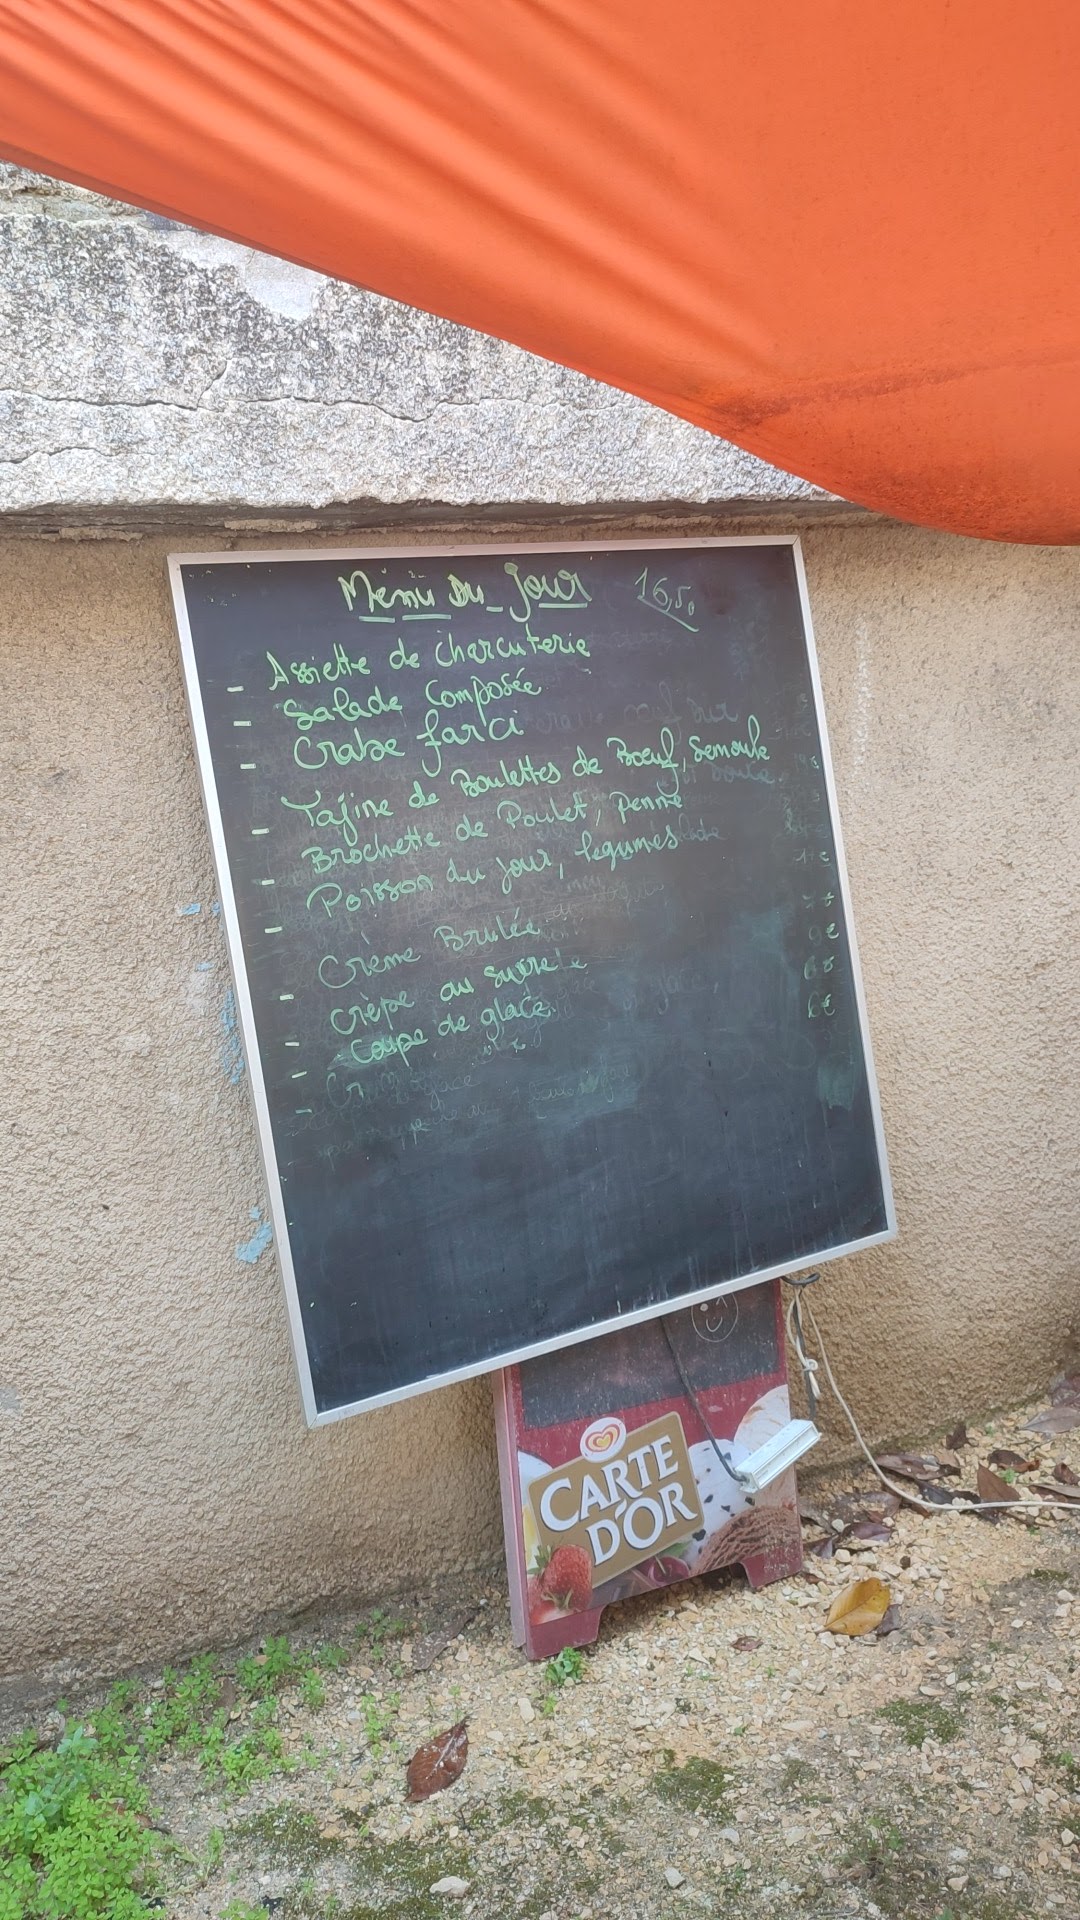 Menu Du Jour 16,50
- Assiette de Charcuterie
- Salade Composée
- Crabe farci
- Tajine de Boulettes de Boeuf, Semoule
- Brochette de Poulet, penne
- Poisson du jour, legumes
- Crème Brulée
- Crèpe au sucre
- Coupe de glace.
9€
6€
CARTE
D'OR